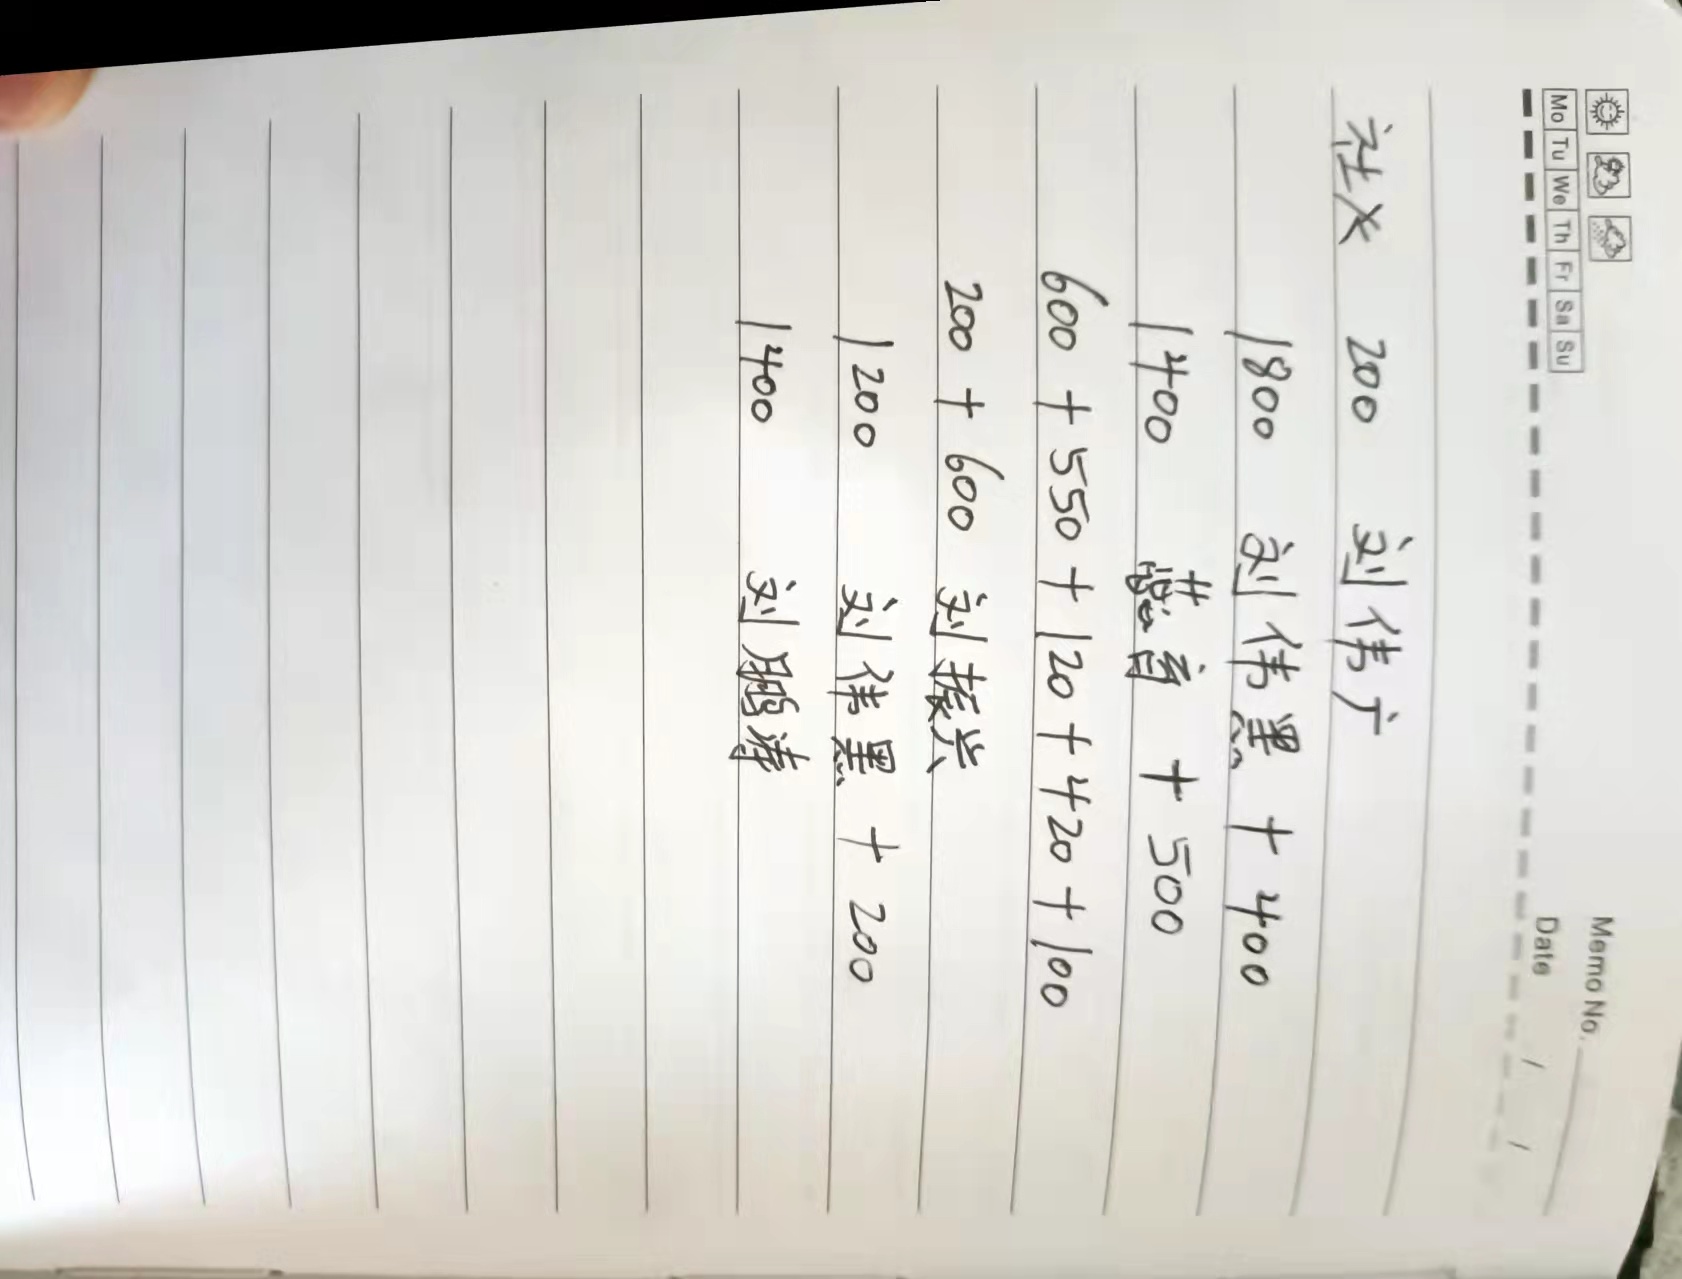 Memo No.
Mo Tu We Th Fr Sa Su Date / /
社火 200 刘伟广
1800 刘伟黑 + 400
1400 + 500
600 + 550 + 120 + 420 + 100
200 + 600 刘振兴
1200 刘伟黑 + 200
1400 刘鹏涛